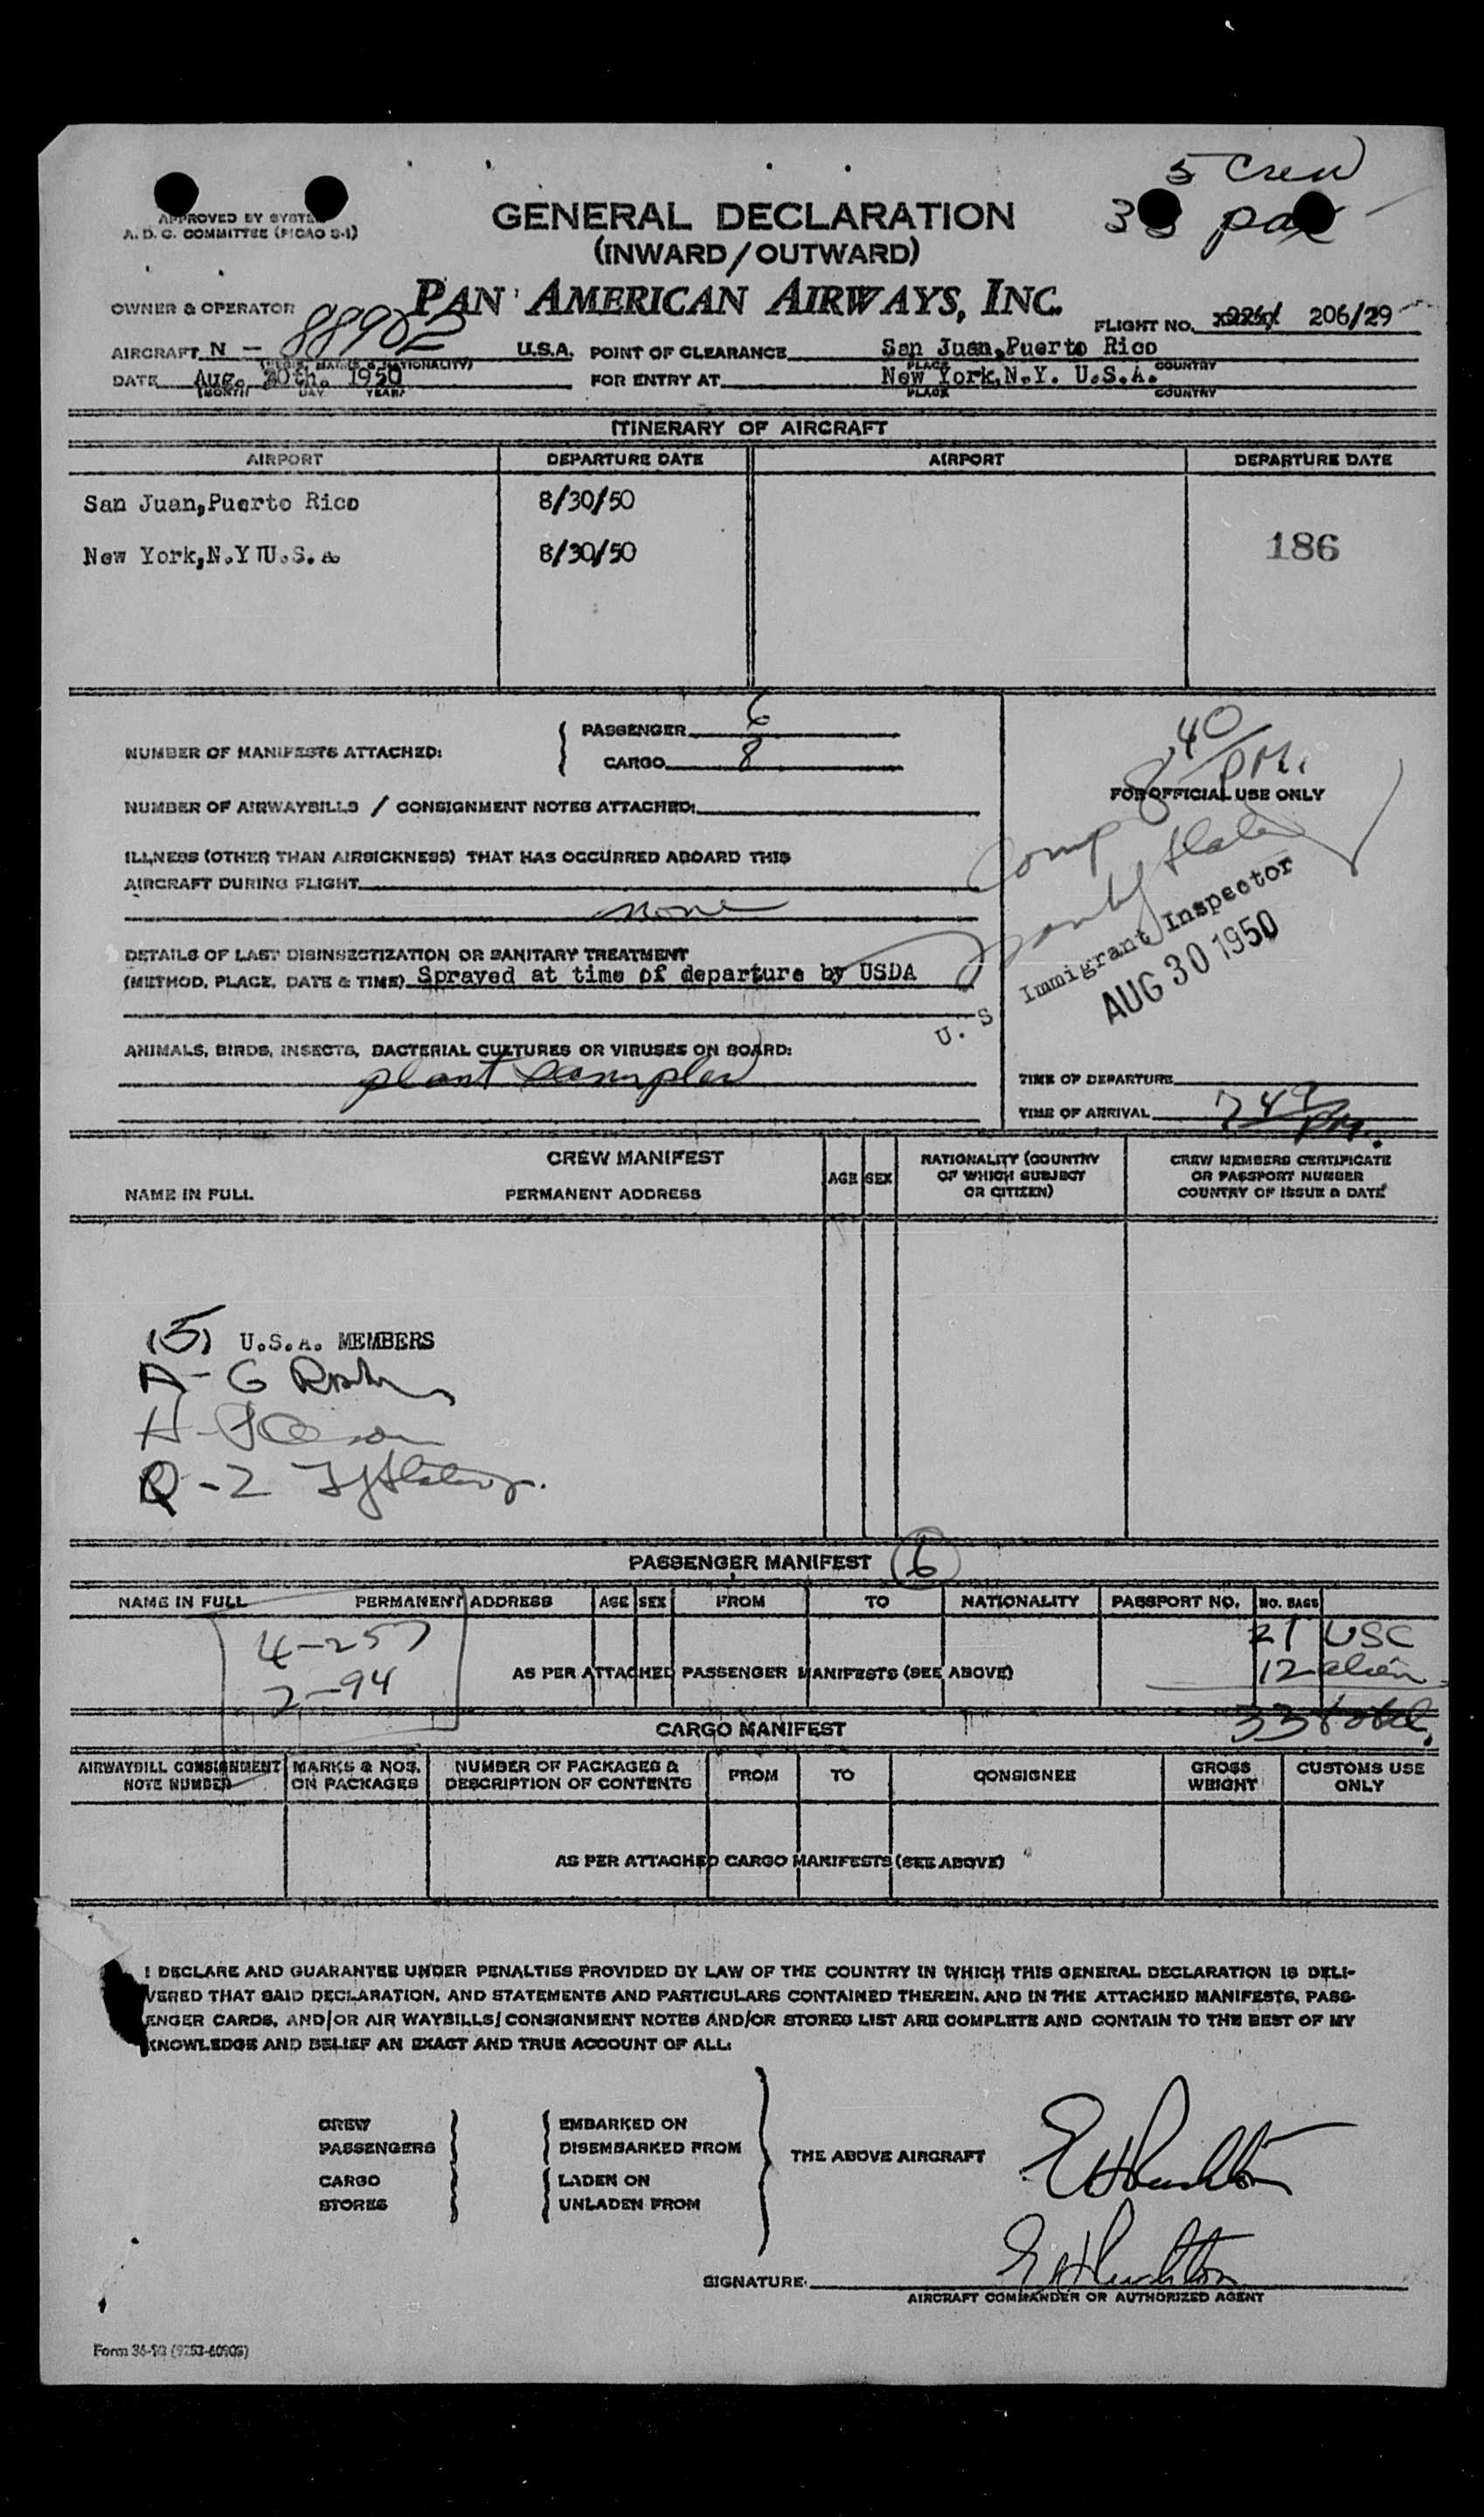 5 Crew
33 pax
APPROVED BY SYSTEM
A. D. C. COMMITTEE (PICAO S-1)
GENERAL DECLARATION
(INWARD/OUTWARD)
OWNER & OPERATOR PAN AMERICAN AIRWAYS, INC.
FLIGHT NO. 206/29
AIRCRAFT N - 88902 U.S.A. POINT OF CLEARANCE San Juan,Puerto Rico
PLACE COUNTRY
DATE Aug. 30th. 1950 FOR ENTRY AT New York,N.Y. U.S.A.
(MONTH DAY YEAR) PLACE COUNTRY
ITINERARY OF AIRCRAFT
AIRPORT DEPARTURE DATE AIRPORT DEPARTURE DATE
San Juan,Puerto Rico 8/30/50
New York,N.Y U.S.A. 8/30/50 186
NUMBER OF MANIFESTS ATTACHED: PASSENGER 6
CARGO 8
8:40 PM.
FOR OFFICIAL USE ONLY
NUMBER OF AIRWAYBILLS / CONSIGNMENT NOTES ATTACHED:
Comp
ILLNESS (OTHER THAN AIRSICKNESS) THAT HAS OCCURRED ABOARD THIS
AIRCRAFT DURING FLIGHT
none
U. S Immigrant Inspector
AUG 30 1950
DETAILS OF LAST DISINSECTIZATION OR SANITARY TREATMENT
(METHOD, PLACE, DATE & TIME) Sprayed at time of departure by USDA
ANIMALS, BIRDS, INSECTS, BACTERIAL CULTURES OR VIRUSES ON BOARD:
plant samples
TIME OF DEPARTURE
TIME OF ARRIVAL 7 49 PM.
CREW MANIFEST
NAME IN FULL PERMANENT ADDRESS AGE SEX NATIONALITY (COUNTRY OF WHICH SUBJECT OR CITIZEN) CREW MEMBERS CERTIFICATE OR PASSPORT NUMBER COUNTRY OF ISSUE & DATE
(5) U.S.A. MEMBERS
A - G
H -
Q - 2
PASSENGER MANIFEST 6
NAME IN FULL PERMANENT ADDRESS AGE SEX FROM TO NATIONALITY PASSPORT NO. NO. BAGS
4-257 21 USC
2-94 AS PER ATTACHED PASSENGER MANIFESTS (SEE ABOVE) 12 alien
33 total
CARGO MANIFEST
AIRWAYBILL CONSIGNMENT NOTE NUMBER MARKS & NOS. ON PACKAGES NUMBER OF PACKAGES & DESCRIPTION OF CONTENTS FROM TO CONSIGNEE GROSS WEIGHT CUSTOMS USE ONLY
AS PER ATTACHED CARGO MANIFESTS (SEE ABOVE)
I DECLARE AND GUARANTEE UNDER PENALTIES PROVIDED BY LAW OF THE COUNTRY IN WHICH THIS GENERAL DECLARATION IS DELI-
VERED THAT SAID DECLARATION, AND STATEMENTS AND PARTICULARS CONTAINED THEREIN, AND IN THE ATTACHED MANIFESTS, PASS-
ENGER CARDS, AND/OR AIR WAYBILLS/ CONSIGNMENT NOTES AND/OR STORES LIST ARE COMPLETE AND CONTAIN TO THE BEST OF MY
KNOWLEDGE AND BELIEF AN EXACT AND TRUE ACCOUNT OF ALL:
CREW EMBARKED ON
PASSENGERS DISEMBARKED FROM
THE ABOVE AIRCRAFT
CARGO LADEN ON
STORES UNLADEN FROM
SIGNATURE
AIRCRAFT COMMANDER OR AUTHORIZED AGENT